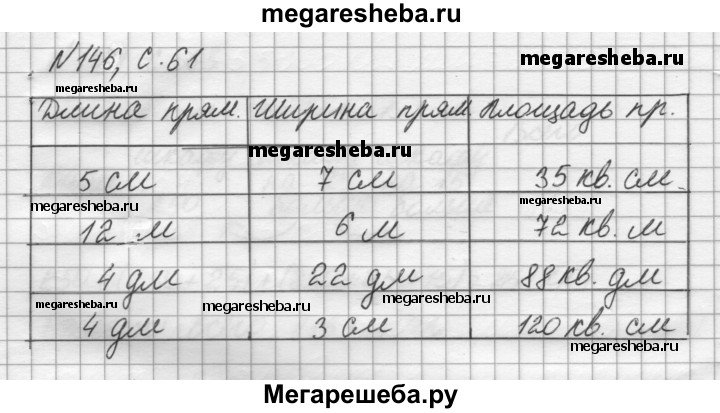 megaresheba.ru
№146, с.61
megaresheba.ru
megaresheba.ru
Длина прям. Ширина прям. Площадь пр.
megaresheba.ru
5 см 7 см 35 кв. см.
megaresheba.ru megaresheba.ru
12 м 6 м 72 кв. м
4 дм 22 дм 88 кв. дм
megaresheba.ru megaresheba.ru megaresheba.ru
4 дм 3 см 120 кв. см
megaresheba.ru
Мегарешеба.ру